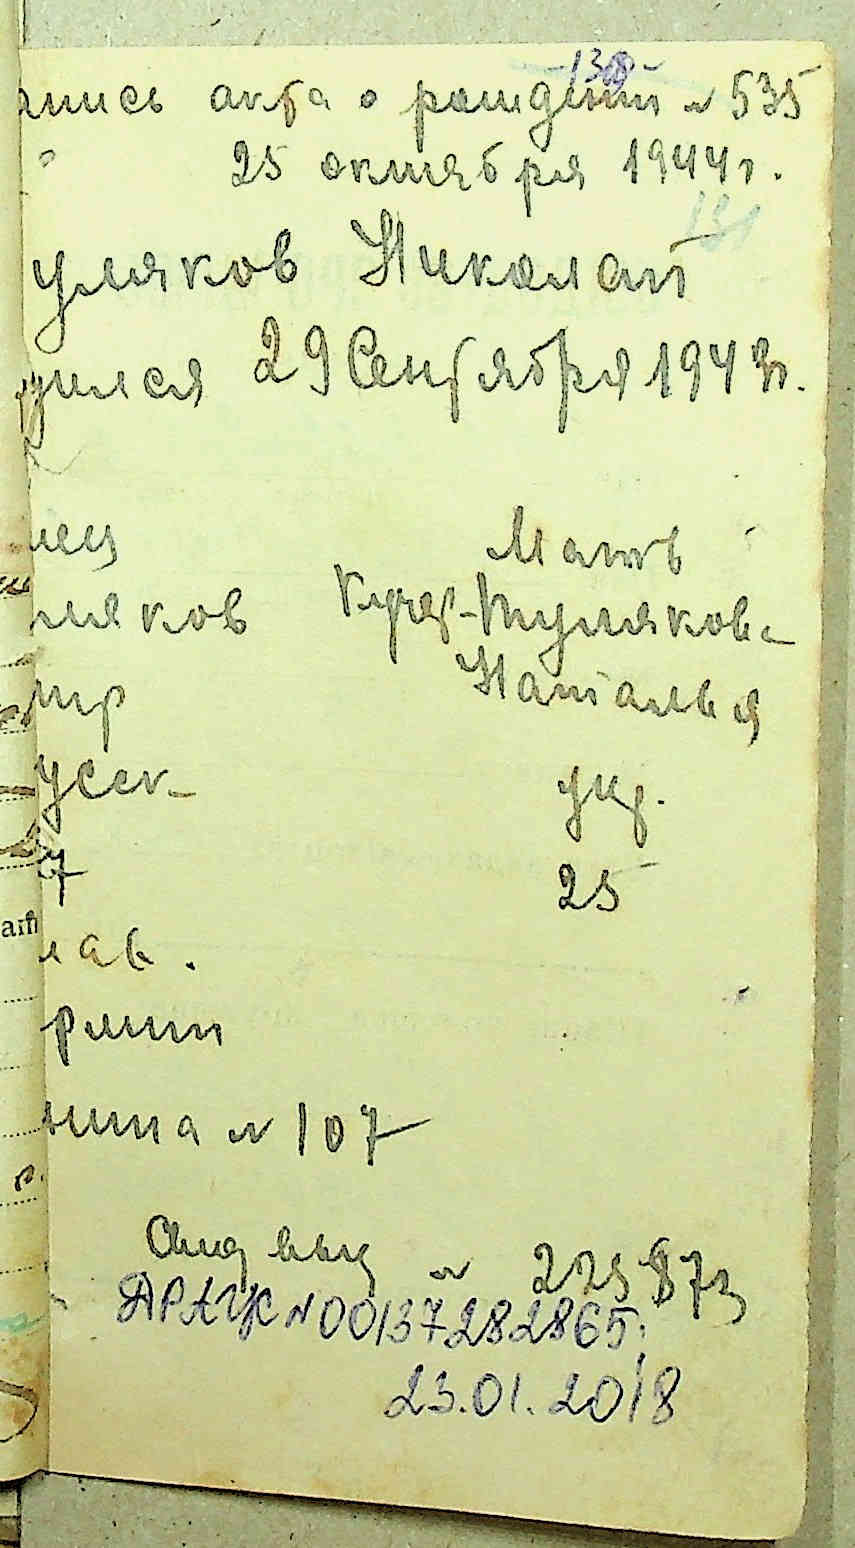 -138-
апись акта о рождении № 535
25 октября 1944 г.
131
уляков Николай
дился 29 Сентября 1943 г.
тец Мать
ляков Кучер-Тулякова
Наталья
усск укр.
7 25
лав.
рмии
нина № 107
выд № 225873
ДРАЦС № 00137282865.
23.01.2018